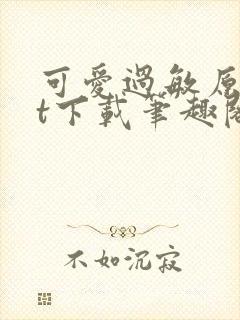 可愛過敏原
t下載筆趣
不如沉寂